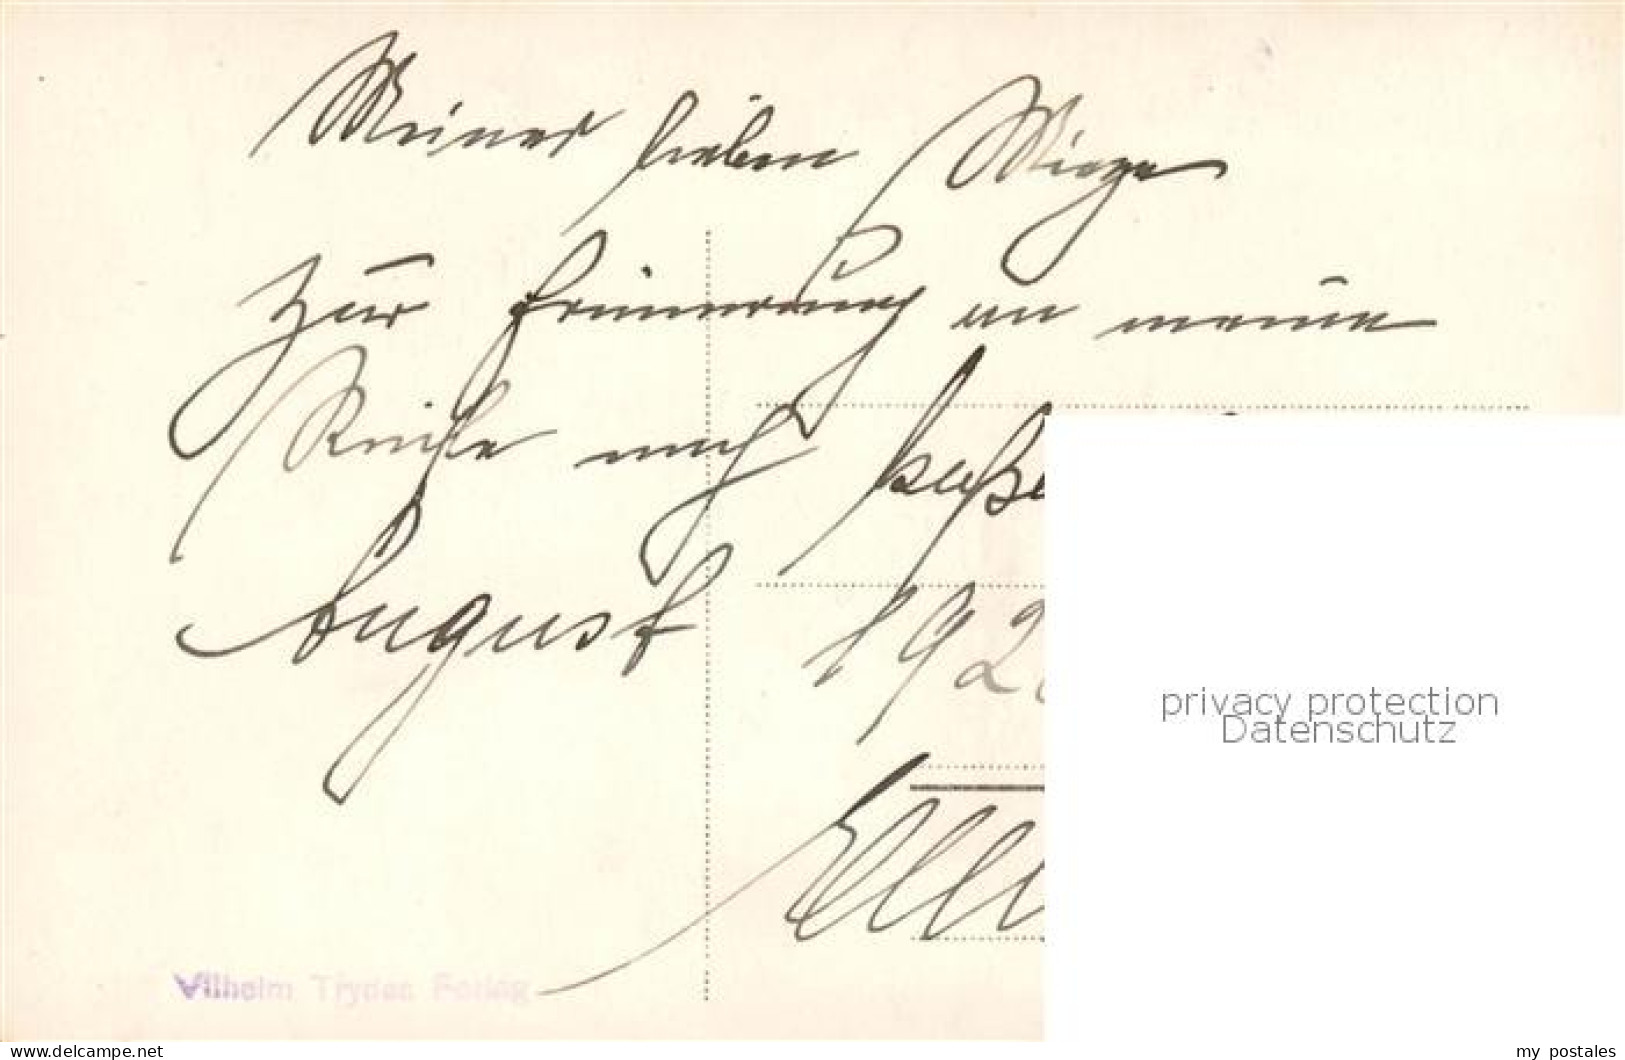 Meiner lieben Miege
Zur Erinnerung an meine
Reise nach
August 192
Vilhelm Trydes Forlag
privacy protection
Datenschutz
www.delcampe.net
my_postales